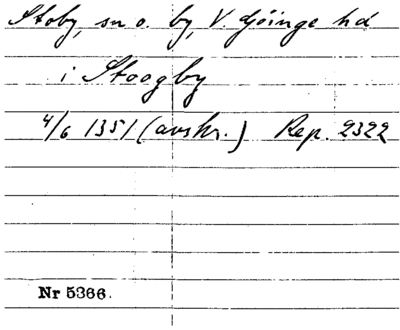 Stoby, sn o. by, V. Göinge hd
i Stoogby
4/6 1351 (avskr.) Rep. 2322
Nr 5366.